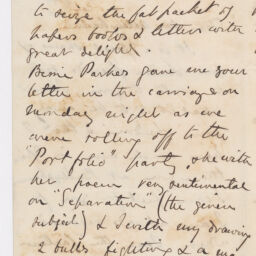 to seize the fat packet of
papers books & letters with
great delight.
Bessie Parkes gave me your
letter in the carriage on
Monday night as we
were rolling off to the
"Portfolio" party, she with
her poem very sentimental
on "Separation" (the given
subject) & I with my drawing
2 bulls fighting & a